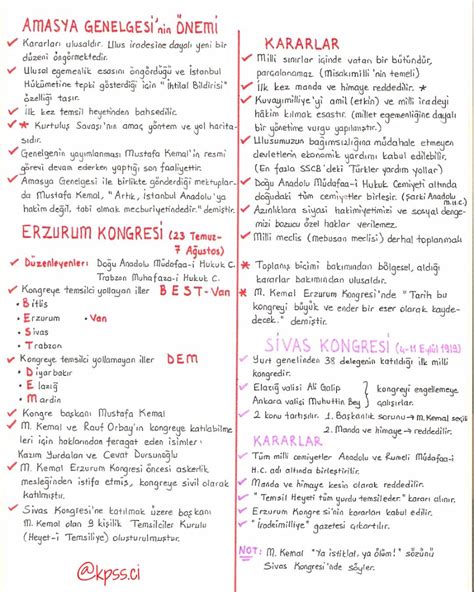 AMASYA GENELGESİ'nin ÖNEMİ
✓ Kararları ulusaldır. Ulus iradesine dayalı yeni bir
düzeni öngörmektedir.
✓ Ulusal egemenlik esasını öngördüğü ve İstanbul
Hükümetine tepki gösterdiği için "İhtilal Bildirisi"
özelliği taşır.
✓ İlk kez temsil heyetinden bahsedilir.
✓ * Kurtuluş Savaşı'nın amaç yöntem ve yol harita-
sıdır.
✓ Genelgenin yayınlanması Mustafa Kemal'in resmi
görevi devam ederken yaptığı son faaliyettir.
✓ Amasya Genelgesi ile birlikte gönderdiği mektuplar-
da Mustafa Kemal, "Artık, İstanbul Anadolu'ya
hakim değil, tabi olmak mecburiyetindedir." demiştir.
ERZURUM KONGRESİ (23 Temuz-
7 Ağustos)
✓ Düzenleyenler: Doğu Anadolu Müdafaa-i Hukuk C.
Trabzon Muhafaza-i Hukuk C.
✓ Kongreye temsilci yollayan iller BEST-Van
• Bitlis
• Erzurum • Van
• Sivas
• Trabzon
✓ Kongreye temsilci yollamayan iller DEM
• Diyarbakır
• Elazığ
• Mardin
✓ Kongre başkanı Mustafa Kemal
✓ M. Kemal ve Rauf Orbay'ın kongreye katılabilme-
leri için haklarından feragat eden isimler:
Kazım Yurdalan ve Cevat Dursunoğlu
✓ M. Kemal Erzurum Kongresi öncesi askerlik
mesleğinden istifa etmiş, kongreye sivil olarak
katılmıştır.
✓ Sivas Kongresi'ne katılmak üzere başkanı
M. Kemal olan 9 kişilik Temsilciler Kurulu
(Heyet-i Temsiliye) oluşturulmuştur.
@kpss.ci
KARARLAR
✓ Milli sınırlar içinde vatan bir bütündür,
parçalanamaz. (Misakımilli'nin temeli)
✓ İlk kez manda ve himaye reddedilir. *
✓ Kuvayımilliye'yi amil (etkin) ve milli iradeyi
hâkim kılmak esastır. (millet egemenliğine dayalı
bir yönetime vurgu yapılmıştır.)
✓ Ulusumuzun bağımsızlığına müdahale etmeyen
devletlerin ekonomik yardımı kabul edilebilir.
(En fazla SSCB'deki Türkler yardım yollar)
✓ Doğu Anadolu Müdafaa-i Hukuk Cemiyeti altında
doğudaki tüm cemiyetler birleşir. (Şarki Anadolu
M.H.C.)
✓ Azınlıklara siyasi hakimiyetimizi ve sosyal denge-
mizi bozucu özel haklar verilemez.
✓ Milli meclis (mebusan meclisi) derhal toplanmalı
* Toplanış biçimi bakımından bölgesel, aldığı
kararlar bakımından ulusaldır.
* M. Kemal Erzurum Kongresi'nde "Tarih bu
kongreyi büyük ve ender bir eser olarak kayde-
decek." demiştir.
SİVAS KONGRESİ (4-11 Eylül 1919)
✓ Yurt genelinden 38 delegenin katıldığı ilk milli
kongredir.
✓ Elazığ valisi Ali Galip } kongreyi engellemeye
Ankara valisi Muhuttin Bey çalışırlar.
✓ 2 konu tartışılır. 1. Başkanlık sorunu → M. Kemal seçik
2. Manda ve himaye → reddedilir.
KARARLAR
✓ Tüm milli cemiyetler Anadolu ve Rumeli Müdafaa-i
H.C. adı altında birleştirilir.
✓ Manda ve himaye kesin olarak reddedilir.
✓ "Temsil Heyeti tüm yurdu temsileder." kararı alınır.
✓ Erzurum Kongresi'nin kararları kabul edilir.
✓ "İradeimilliye" gazetesi çıkartılır.
NOT: M. Kemal "Ya istiklal, ya ölüm!" sözünü
Sivas Kongresi'nde söyler.